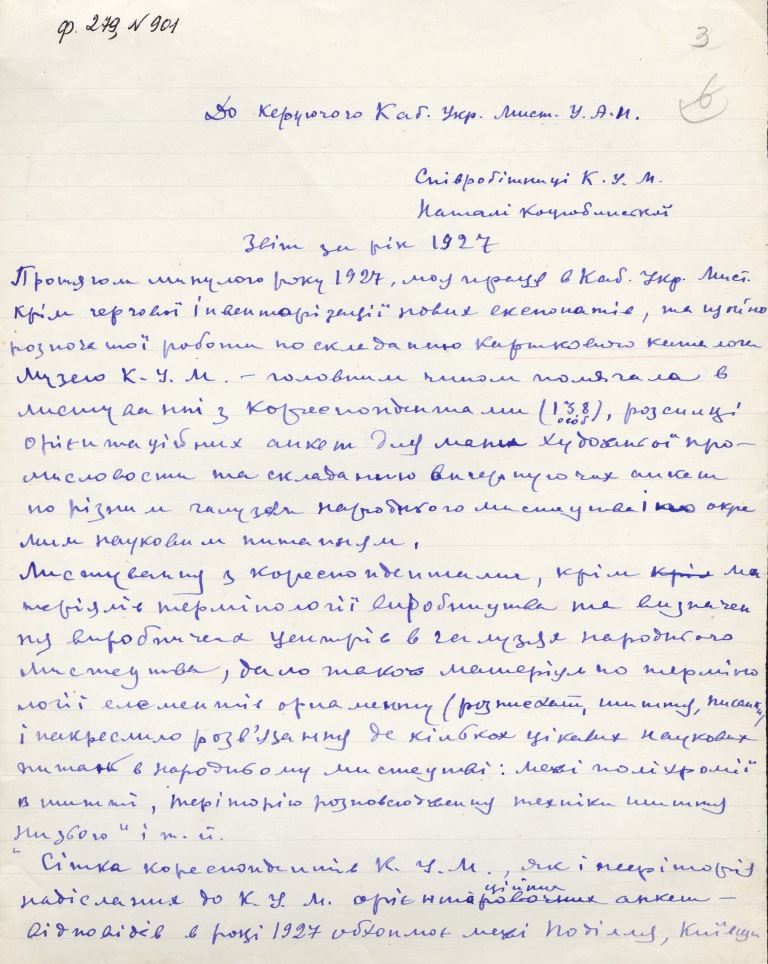 ф. 279, № 901
3
6
До керуючого Каб. Укр. Мист. У.А.Н.
Співробітниці К.У.М.
Наталі Коцюбинської
Звіт за рік 1927
Протягом минулого року 1927, моя праця в Каб. Укр. Мист.
крім чергової інвентарізації нових експонатів, та
розпочатої роботи по складанню карткового каталога
Музею К.У.М. – головним чином полягала в
листуванні з кореспондентами (138 особ), розсилці
орієнтаційних анкет для мапи художньої про-
мисловости та складанню вичерпуючих анкет
по різним галузям народнього мистецтва і по окре
мим науковим питанням.
Листування з кореспондентами, крім крім ма
теріялів термінології виробництва та визначен
ня виробничих центрів в галузях народнього
мистецтва, дало також матеріял по терміно
логії елементів орнаменту (розписів, шиття, писанки)
і накреслило розв'язання де кількох цікавих наукових
питань в народньому мистецтві: межі поліхромії
в шитті, теріторію розповсюдження техніки шиття
„низзю" і т. й.
Сітка кореспондентів К.У.М., як і теріторія
надісланих до К.У.М. орієнтаційних анкет –
відповідів в році 1927 обхоплює межі Поділля, Київщи